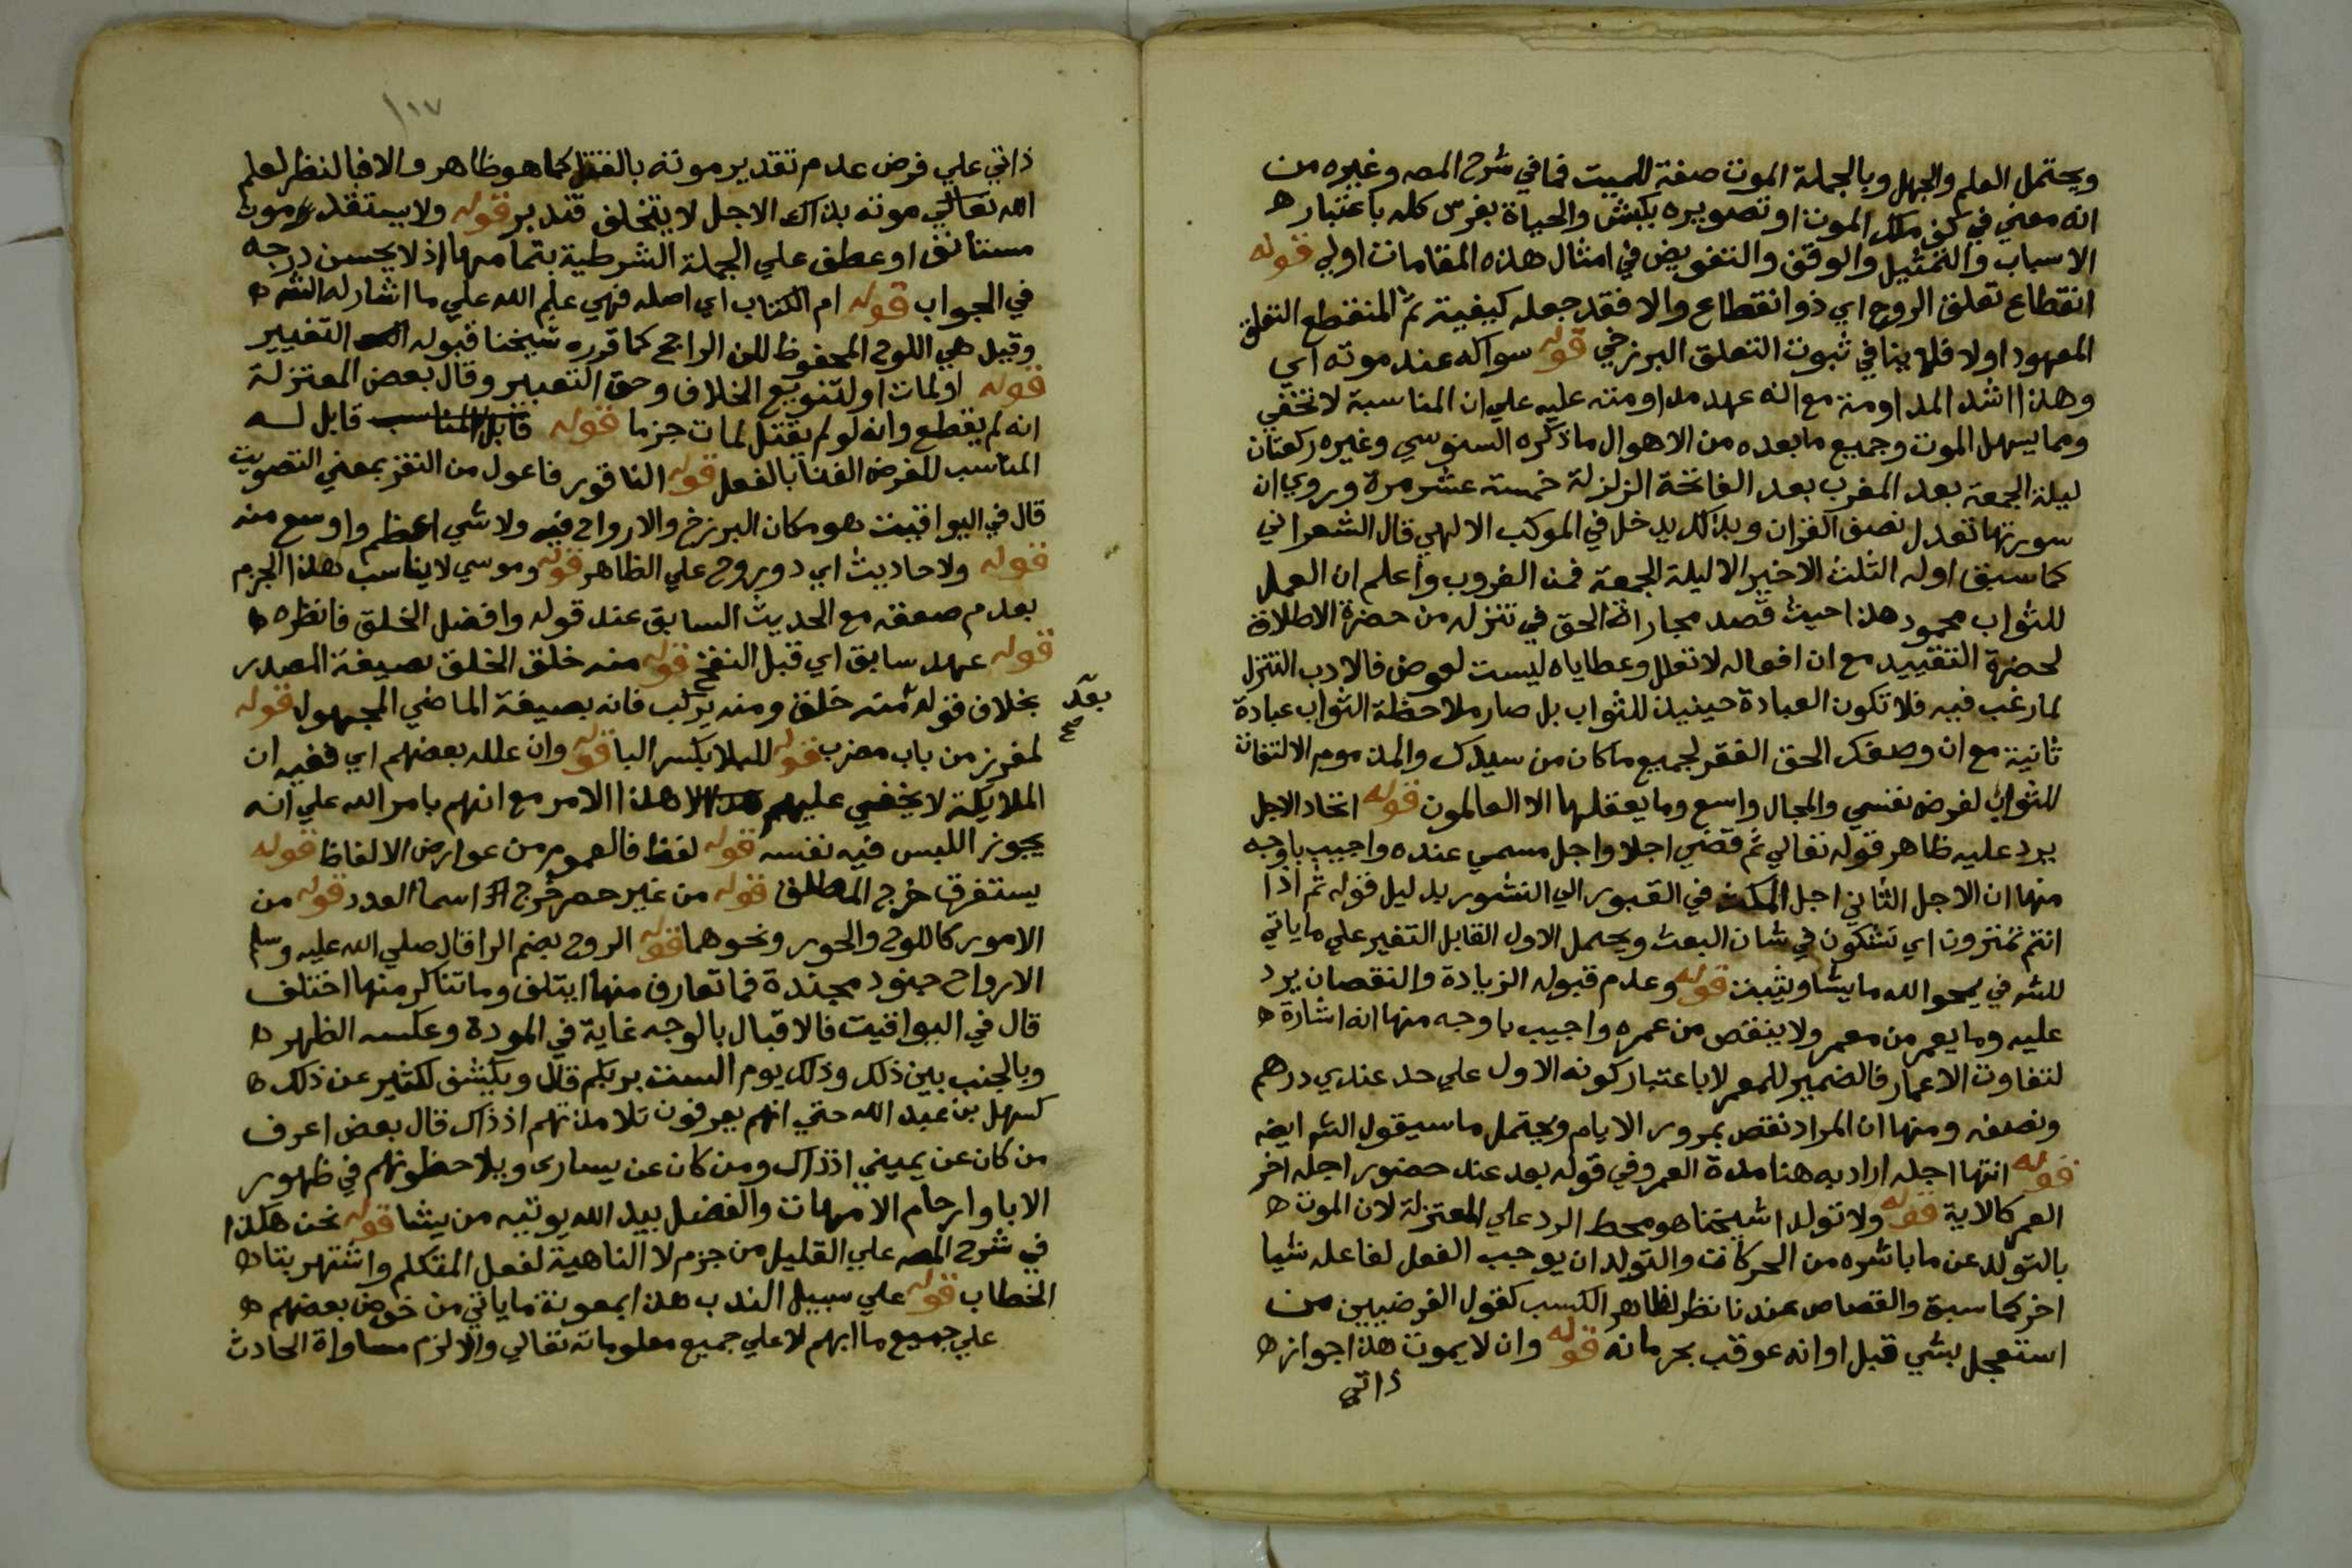 ويحتمل العلم والجهل وبالجملة الموت صفة للميت فما في شرح المص وغيره من
انه معني في كف ملك الموت او تصويره بكبش والحياة بفرس كله باعتبار
الاسباب والتمثيل والوقف والتفويض في امثال هذه المقامات اولي قوله
انقطاع تعلق الروح اي ذو انقطاع والا فقد جعله كيفية ثم المنقطع التعلق
المعهود اولا فلا ينافي ثبوت التعلق البرزخي قوله سواكه عند موته اي
وهذا اشد المداومة مع انه عهد مداومته عليه علي ان المناسبة لا تخفي
ومما يسهل الموت وجميع ما بعده من الاهوال ما ذكره السنوسي وغيره ركعتان
ليلة الجمعة بعد المغرب بعد الفاتحة الزلزلة خمسة عشر مرة وروي ان
سورتها تعدل نصف القران وبذلك يدخل في الموكب الالهي قال الشعراني
كما سبق اوله الثلث الاخير الا ليلة الجمعة فمن الغروب واعلم ان العمل
للثواب محمود هذا حيث قصد مجاراة الحق في تنزله من حضرة الاطلاق
لحضرة التقييد مع ان افعاله لا تعلل وعطاياه ليست لعوض فالادب التنزل
لما رغب فيه فلا تكون العبادة حينيذ للثواب بل صار ملاحظة الثواب عبادة
ثانية مع ان وصفك الحق الفقر لجميع ما كان من سيدك والمذموم الالتفات
للثواب لغرض نفسي والمجال واسع وما يعقلها الا العالمون قوله اتحاد الاجل
يرد عليه ظاهر قوله تعالي ثم قضي اجلا واجل مسمي عنده واجيب باوجه
منها ان الاجل الثاني اجل المكث في القبور الي النشور بدليل قوله ثم اذا
انتم تمترون اي تشكون في شان البعث ويحتمل الاول القابل التغير علي ما ياتي
للش في يمحو الله ما يشا ويثبت قوله وعدم قبوله الزيادة والنقصان يرد
عليه وما يعمر من معمر ولا ينقص من عمره واجيب باوجه منها انه اشارة
لتفاوت الاعمار فالضمير للمعمر لا باعتبار كونه الاول علي حد عندي درهم
ونصفه ومنها ان المراد نقص بمرور الايام ويحتمل ما سيقول الش ايضه
قوله انتها اجله اراد به هنا مدة العمر وفي قوله بعد عند حضور اجله اخر
العمر كالاية قوله ولا تولدا شيخنا هو محط الرد علي المعتزلة لان الموت
بالتولد عن ما باشره من الحركات والتولد ان يوجب الفعل لفاعله شيا
اخر كما سبق والقصاص عندنا نظر لظاهر الكسب كقول الفرضيين من
استعجل بشي قبل اوانه عوقب بحرمانه قوله وان لا يموت هذا جواز
ذاتي
١١٧
ذاتي علي فرض عدم تقدير موته بالقتل كما هو ظاهر والا فبالنظر لعلم
الله تعالي موته بذاك الاجل لا يتخلف فتدبر قوله ولا يستقدموت
مستانف او عطف علي الجملة الشرطية بتمامها اذ لا يحسن درجه
في الجواب قوله ام الكتاب اي اصله فهي علم الله علي ما اشار له الش
وقيل هي اللوح المحفوظ لكن الراجح كما قرره شيخنا قبوله التغيير
قوله او لمات او لتنويع الخلاف وحق التعبير وقال بعض المعتزلة
انه لم يقطع وانه لو لم يقتل لمات جزما قوله قابل له
المناسب للغرض الفنا بالفعل قوله الناقور فاعول من النقر بمعني التصويت
قال في اليواقيت هو مكان البرزخ والارواح فيه ولا شي اعظم واوسع منه
قوله ولاحاديث اي دوروح علي الظاهر قوله وموسي لا يناسب هذا الجزم
بعدم صعقه مع الحديث السابق عند قوله وافضل الخلق فانظره
قوله عهد سابق اي قبل النفخ قوله منه خلق الخلق بصيغة المصدر
بخلاف قوله بعد صح منه خلق ومنه يركب فانه بصيغة الماضي المجهول قوله
لمغرز من باب مضرب قوله للبلا بكسر البا قوله وان علله بعضهم اي ففيه ان
الملايكة لا يخفي عليهم هذا الامر مع انهم بامر الله علي انه
يجوز اللبس فيه نفسه قوله لفظ فالعموم من عوارض الالفاظ قوله
يستغرق خرج المطلق قوله من غير حصر خرج اسما العدد قوله من
الامور كاللوح والحور ونحوهما قوله الروح بضم الرا قال صلي الله عليه وسلم
الارواح جنود مجندة فما تعارف منها ايتلف وما تناكر منها اختلف
قال في اليواقيت فالاقبال بالوجه غاية في المودة وعكسه الظهر
وبالجنب بين ذلك وذلك يوم الست بربكم قال ويكشف لكثير عن ذلك
كسهل بن عبد الله حتي انهم يعرفون تلامذتهم اذ ذاك قال بعض اعرف
من كان عن يميني اذ ذاك ومن كان عن يساري ويلاحظونهم في ظهور
الابا وارحام الامهات والفضل بيد الله يوتيه من يشا قوله نحن هكذا
في شرح المص علي القليل من جزم لا الناهية لفعل المتكلم واشتهر بتا
الخطاب قوله علي سبيل الندب هذا بمعونة ما ياتي من خوض بعضهم
علي جميع ما ابهم لا علي جميع معلوماته تعالي والا لزم مساواة الحادث